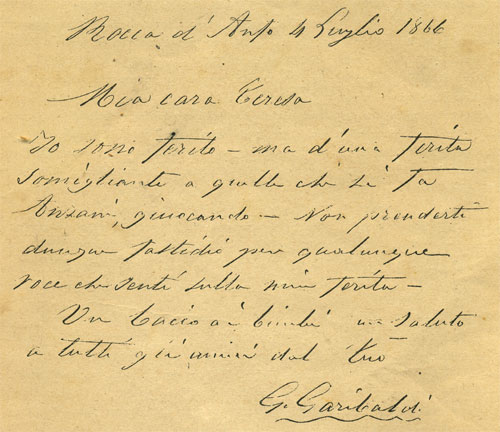 Rocca d'Anfo 4 Luglio 1866
Mia cara Teresa
Io sono ferito – ma d'una ferita
somigliante a quelle che si fa
Anzani, giuocando – Non prenderti
dunque fastidio per qualunque
voce che senti sulla mia ferita –
Un bacio ai bimbi un saluto
a tutti gli amici dal tuo
G. Garibaldi